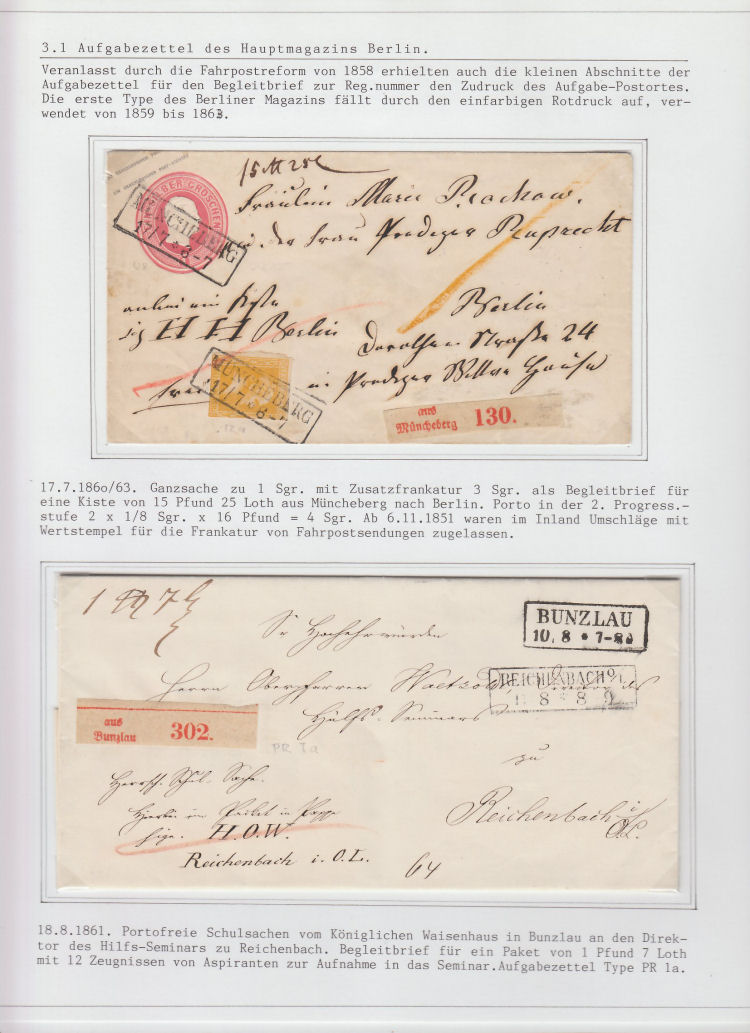 3.1 Aufgabezettel des Hauptmagazins Berlin.
Veranlasst durch die Fahrpostreform von 1858 erhielten auch die kleinen Abschnitte der
Aufgabezettel für den Begleitbrief zur Reg.nummer den Zudruck des Aufgabe-Postortes.
Die erste Type des Berliner Magazins fällt durch den einfarbigen Rotdruck auf, ver-
wendet von 1859 bis 1863.
SILBER GROSCHEN
MÜNCHEBERG
17/7 * 6-7
Fräulein Marie
in der Frau Prediger Ruprecht
anbei ein Kiste
sig H H Berlin
Berlin
Dorotheen Straße 24
im Prediger Wittwe Hause
MÜNCHEBERG
17/7 * 6-7
aus
Müncheberg 130.
17.7.1860/63. Ganzsache zu 1 Sgr. mit Zusatzfrankatur 3 Sgr. als Begleitbrief für
eine Kiste von 15 Pfund 25 Loth aus Müncheberg nach Berlin. Porto in der 2. Progress.-
stufe 2 x 1/8 Sgr. x 16 Pfund = 4 Sgr. Ab 6.11.1851 waren im Inland Umschläge mit
Wertstempel für die Frankatur von Fahrpostsendungen zugelassen.
BUNZLAU
10. 8 * 7-8
Sr Hochehrwürden
REICHENBACH O/L.
Herrn Oberpfarrer
Hülfs-Seminars
aus
Bunzlau 302.
PR Ia
zu
Herrsch. Schul-Sache.
Reichenbach
O.L.
H.O.W.
Reichenbach i. O.L.
64
18.8.1861. Portofreie Schulsachen vom Königlichen Waisenhaus in Bunzlau an den Direk-
tor des Hilfs-Seminars zu Reichenbach. Begleitbrief für ein Paket von 1 Pfund 7 Loth
mit 12 Zeugnissen von Aspiranten zur Aufnahme in das Seminar.Aufgabezettel Type PR 1a.